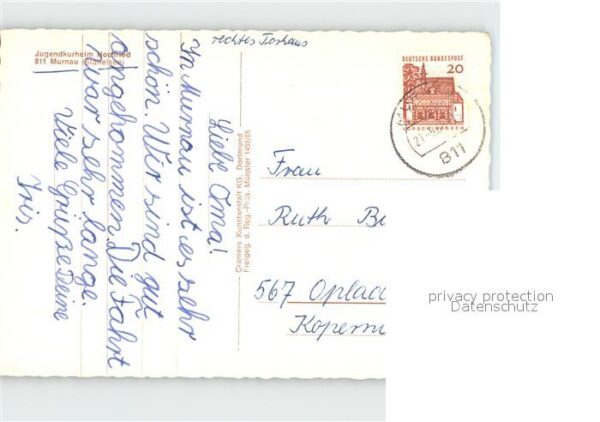 rechtes Torhaus
Jugendkurheim Hochried
811 Murnau (Staffelsee)
Liebe Oma!
In Murnau ist es sehr
schön. Wir sind gut
angekommen. Die Fahrt
war sehr lange.
Viele Grüße Deine
Iris.
Cramers Kunstanstalt KG, Dortmund
Freigeg. d. Reg.-Präs. Münster
DEUTSCHE BUNDESPOST
20
LORSCH/HESSEN
811
Frau
Ruth
567 Oplad
Koperni
privacy protection
Datenschutz